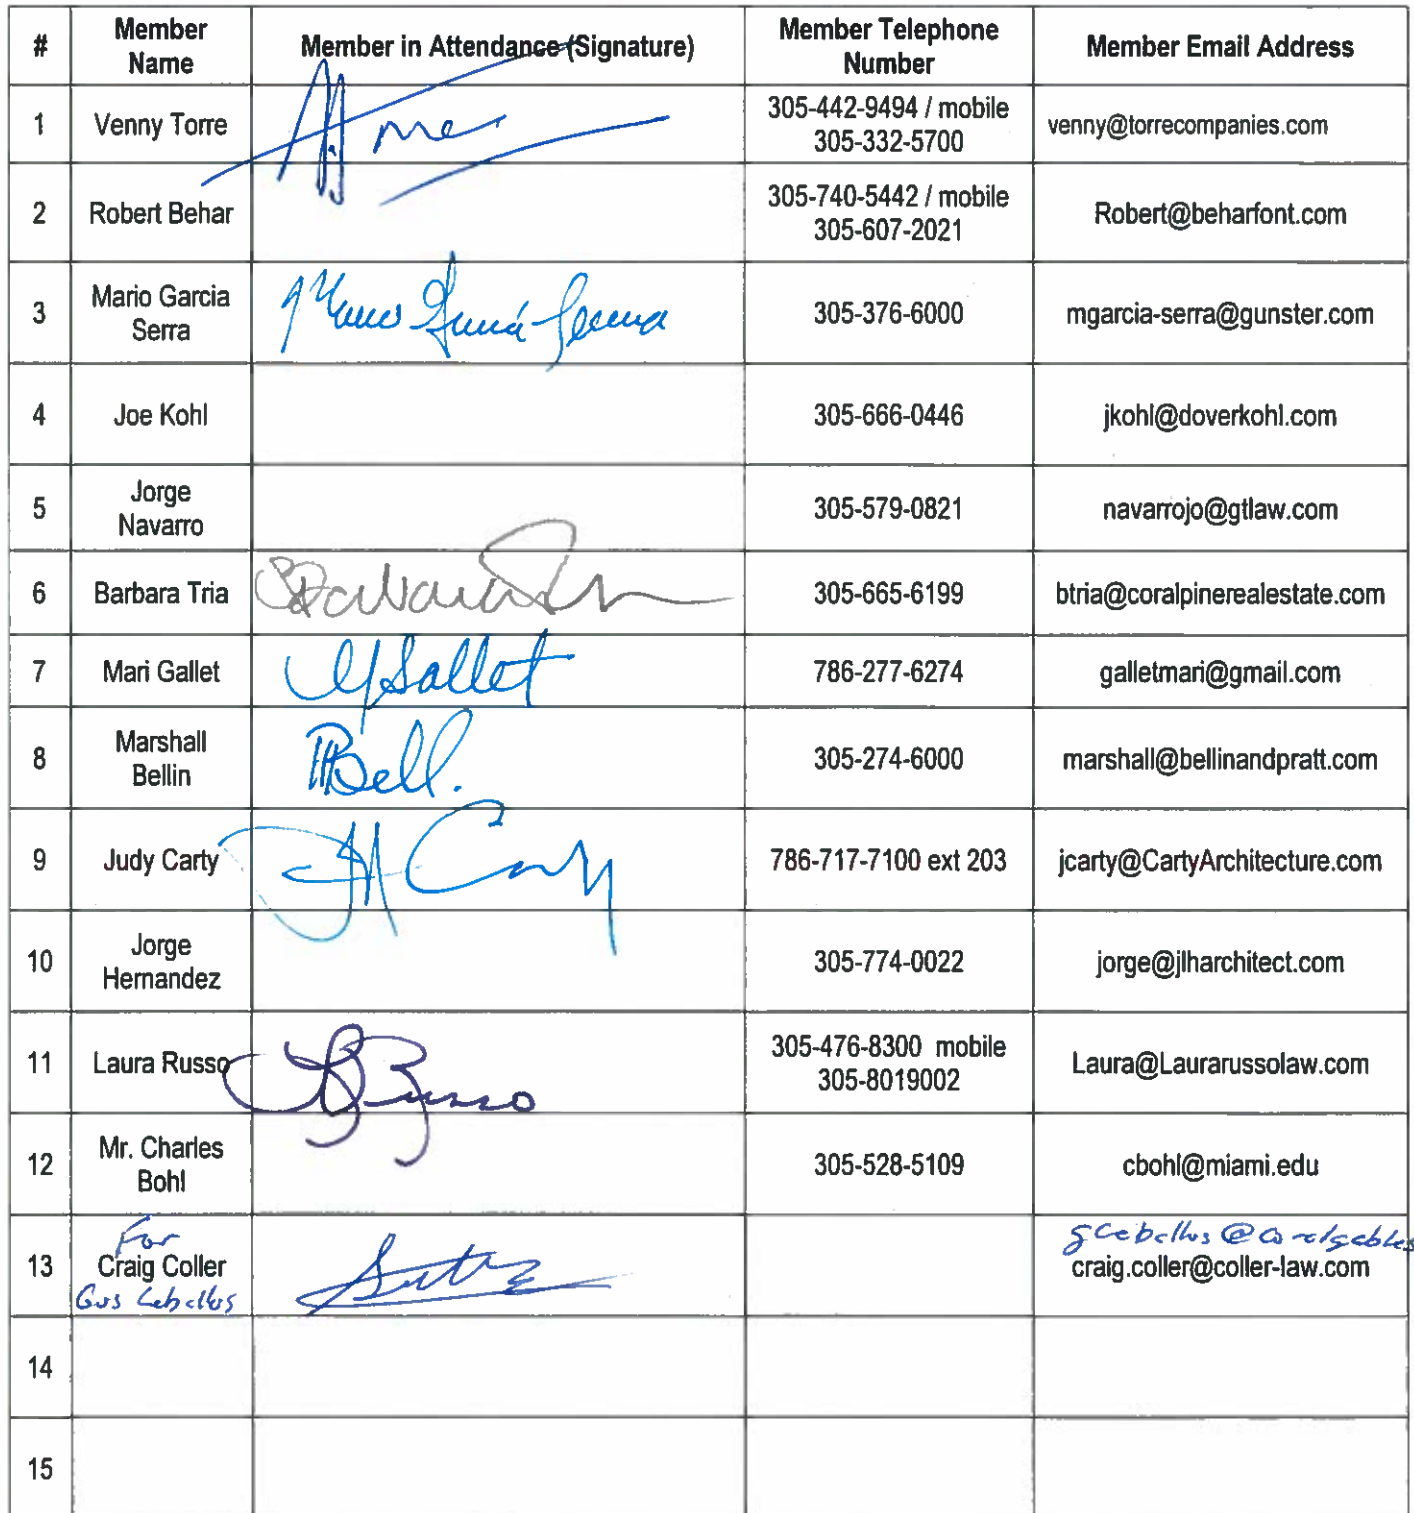 # Member Name Member in Attendance (Signature) Member Telephone Number Member Email Address
1 Venny Torre 305-442-9494 / mobile 305-332-5700 venny@torrecompanies.com
2 Robert Behar 305-740-5442 / mobile 305-607-2021 Robert@beharfont.com
3 Mario Garcia Serra 305-376-6000 mgarcia-serra@gunster.com
4 Joe Kohl 305-666-0446 jkohl@doverkohl.com
5 Jorge Navarro 305-579-0821 navarrojo@gtlaw.com
6 Barbara Tria 305-665-6199 btria@coralpinerealestate.com
7 Mari Gallet MGallet 786-277-6274 galletmari@gmail.com
8 Marshall Bellin Bell. 305-274-6000 marshall@bellinandpratt.com
9 Judy Carty 786-717-7100 ext 203 jcarty@CartyArchitecture.com
10 Jorge Hernandez 305-774-0022 jorge@jlharchitect.com
11 Laura Russo Russo 305-476-8300 mobile 305-8019002 Laura@Laurarussolaw.com
12 Mr. Charles Bohl 305-528-5109 cbohl@miami.edu
For gceballos@coralgables
13 Craig Coller craig.coller@coller-law.com
Gus Ceballos
14
15